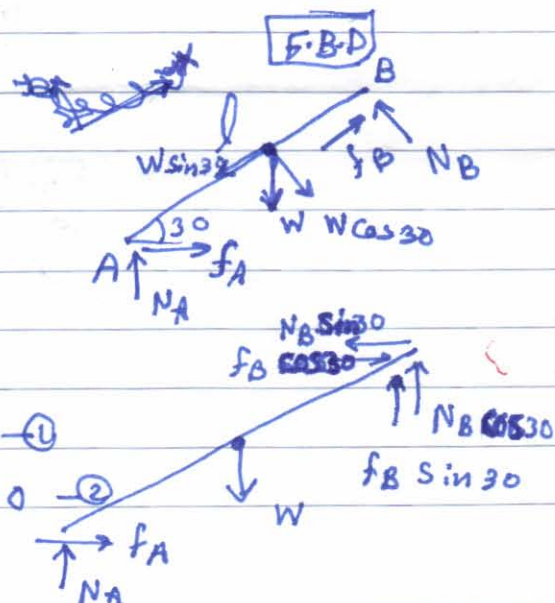 F.B.D
B
l
W sin 30
f_B N_B
W W cos 30
30
A f_A
N_A
N_B Sin 30
f_B cos 30
—①
N_B cos 30
f_B Sin 30
0 —②
W
f_A
N_A